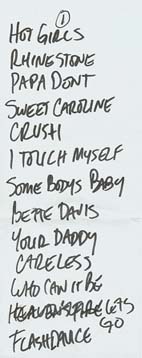 ①
HOT GIRLS
RHINESTONE
PAPA DONT
SWEET CAROLINE
CRUSH
I TOUCH MYSELF
SOME BODYS BABY
BETTE DAVIS
YOUR DADDY
CARELESS
WHO CAN IT BE
LETS GO
FLASHDANCE